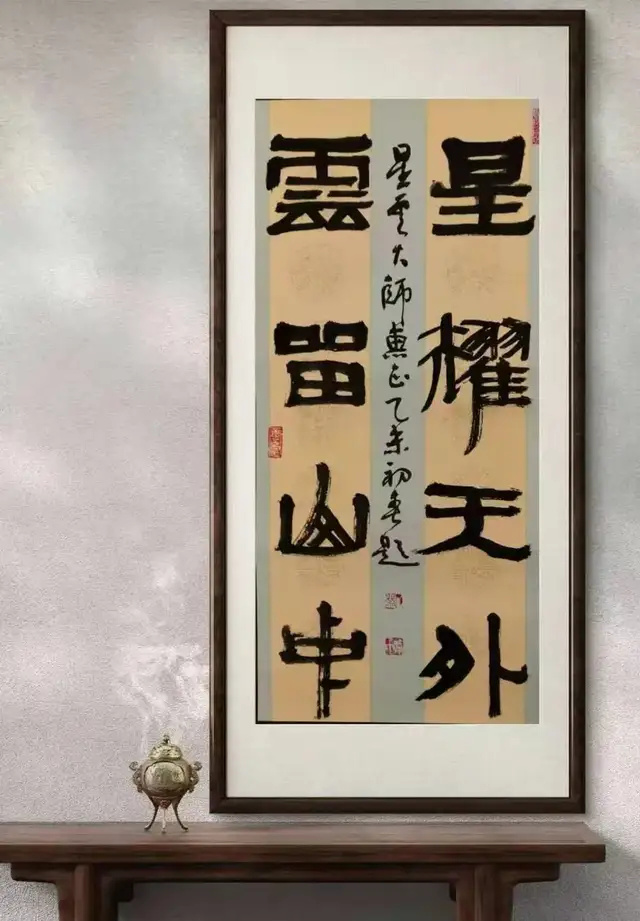 星耀天外
星雲大師惠正乙未初春題
雲留山中